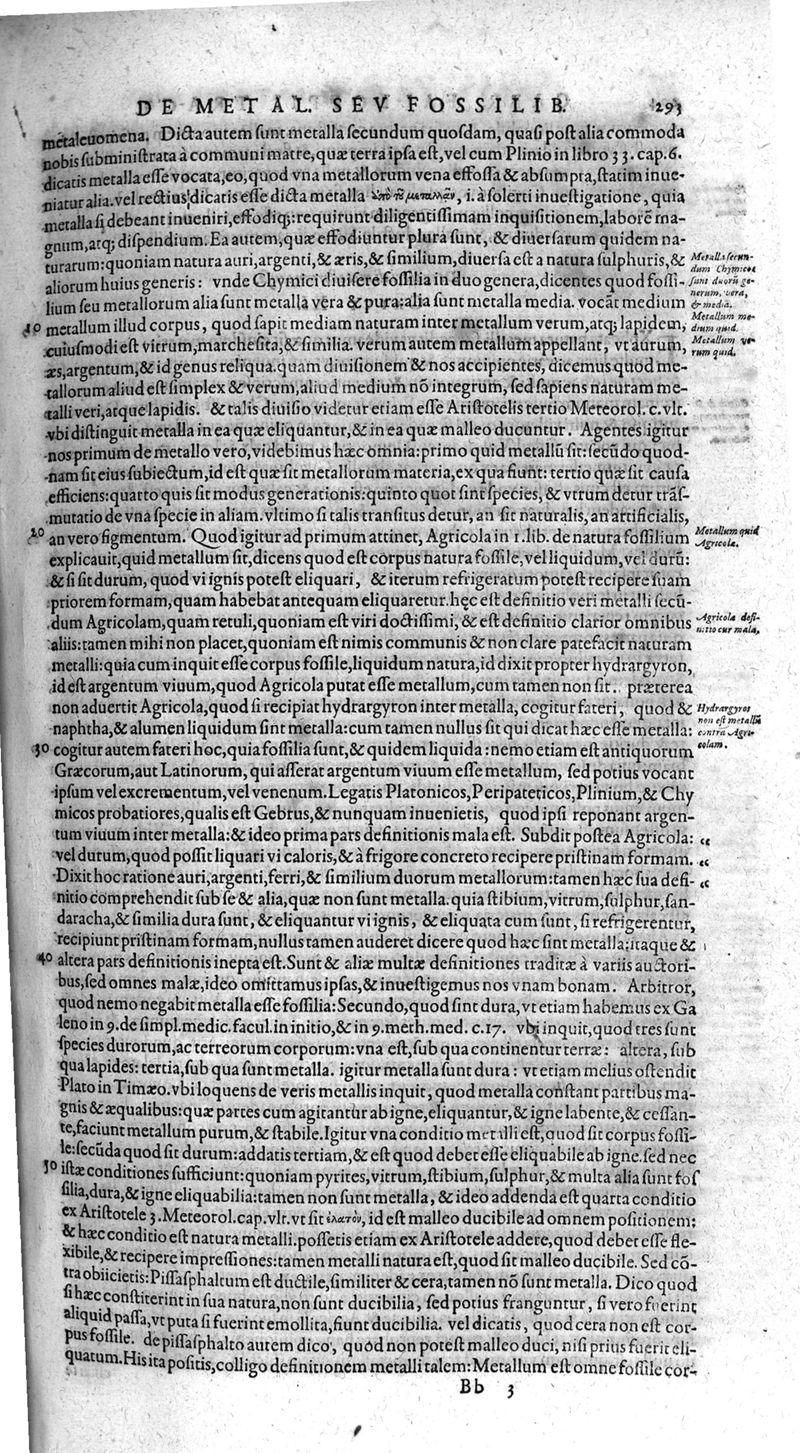 DE METAL. SEV FOSSILIB. 293
metaleuomena. Dicta autem ſunt metalla ſecundum quoſdam, quaſi poſt alia commoda
nobis ſubminiſtrata à communi matre, quæ terra ipſa eſt, vel cum Plinio in libro 33. cap. 6.
dicatis metalla eſſe vocata, eo, quod vna metallorum vena effoſſa & abſumpta, ſtatim inue-
niatur alia. vel rectius dicatis eſſe dicta metalla i. à ſolerti inueſtigatione, quia
metalla ſi debeant inueniri, effodiq;: requirunt diligentiſſimam inquiſitionem, laborē ma-
gnum, atq; diſpendium. Ea autem, quæ effodiuntur plura ſunt, & diuerſarum quidem na-
turarum: quoniam natura auri, argenti, & æris, & ſimilium, diuerſa eſt a natura ſulphuris, &
aliorum huius generis: vnde Chymici diuiſere foſſilia in duo genera, dicentes quod foſſi-
lium ſeu metallorum alia ſunt metalla vera & pura: alia ſunt metalla media. vocāt medium
10 metallum illud corpus, quod ſapit mediam naturam inter metallum verum, atq; lapidem,
cuiuſmodi eſt vitrum, marcheſita, & ſimilia. verum autem metallum appellant, vt aurum,
æs, argentum, & id genus reliqua. quam diuiſionem & nos accipientes, dicemus quod me-
tallorum aliud eſt ſimplex & verum, aliud medium nō integrum, ſed ſapiens naturam me-
talli veri, atque lapidis. & talis diuiſio videtur etiam eſſe Ariſtotelis tertio Meteorol. c. vlt.
vbi diſtinguit metalla in ea quæ eliquantur, & in ea quæ malleo ducuntur. Agentes igitur
nos primum de metallo vero, videbimus hæc omnia: primo quid metallū ſit: ſecūdo quod-
nam ſit eius ſubiectum, id eſt quæ ſit metallorum materia, ex qua fiunt: tertio quæ ſit cauſa
efficiens: quarto quis ſit modus generationis: quinto quot ſint ſpecies, & vtrum detur trāſ-
mutatio de vna ſpecie in aliam. vltimo ſi talis tranſitus detur, an ſit naturalis, an artificialis,
20 an vero figmentum. Quod igitur ad primum attinet, Agricola in 1. lib. de natura foſſilium
explicauit, quid metallum ſit, dicens quod eſt corpus natura foſſile, vel liquidum, vel durū:
& ſi ſit durum, quod vi ignis poteſt eliquari, & iterum refrigeratum poteſt recipere ſuam
priorem formam, quam habebat antequam eliquaretur. hęc eſt definitio veri metalli ſecū-
dum Agricolam, quam retuli, quoniam eſt viri doctiſſimi, & eſt definitio clarior omnibus
aliis: tamen mihi non placet, quoniam eſt nimis communis & non clare patefacit naturam
metalli: quia cum inquit eſſe corpus foſſile, liquidum natura, id dixit propter hydrargyron,
id eſt argentum viuum, quod Agricola putat eſſe metallum, cum tamen non ſit. præterea
non aduertit Agricola, quod ſi recipiat hydrargyron inter metalla, cogitur fateri, quod &
naphtha, & alumen liquidum ſint metalla: cum tamen nullus ſit qui dicat hæc eſſe metalla:
30 cogitur autem fateri hoc, quia foſſilia ſunt, & quidem liquida: nemo etiam eſt antiquorum
Græcorum, aut Latinorum, qui aſſerat argentum viuum eſſe metallum, ſed potius vocant
ipſum vel excrementum, vel venenum. Legatis Platonicos, Peripateticos, Plinium, & Chy
micos probatiores, qualis eſt Gebrus, & nunquam inuenietis, quod ipſi reponant argen-
tum viuum inter metalla: & ideo prima pars definitionis mala eſt. Subdit poſtea Agricola:
vel durum, quod poſſit liquari vi caloris, & à frigore concreto recipere priſtinam formam.
Dixit hoc ratione auri, argenti, ferri, & ſimilium duorum metallorum: tamen hæc ſua defi-
nitio comprehendit ſub ſe & alia, quæ non ſunt metalla. quia ſtibium, vitrum, ſulphur, ſan-
daracha, & ſimilia dura ſunt, & eliquantur vi ignis, & eliquata cum ſunt, ſi refrigerentur,
recipiunt priſtinam formam, nullus tamen auderet dicere quod hæc ſint metalla: itaque &
40 altera pars definitionis inepta eſt. Sunt & aliæ multæ definitiones traditæ à variis auctori-
bus, ſed omnes malæ, ideo omittamus ipſas, & inueſtigemus nos vnam bonam. Arbitror,
quod nemo negabit metalla eſſe foſſilia: Secundo, quod ſint dura, vt etiam habemus ex Ga
leno in 9. de ſimpl. medic. facul. in initio, & in 9. meth. med. c. 17. vbi inquit, quod tres ſunt
ſpecies durorum, ac terreorum corporum: vna eſt, ſub qua continentur terræ: altera, ſub
qua lapides: tertia, ſub qua ſunt metalla. igitur metalla ſunt dura: vt etiam melius oſtendit
Plato in Timæo. vbi loquens de veris metallis inquit, quod metalla conſtant partibus ma-
gnis & æqualibus: quæ partes cum agitantur ab igne, eliquantur, & igne labente, & ceſſan-
te, faciunt metallum purum, & ſtabile. Igitur vna conditio metalli eſt, quod ſit corpus foſſi-
le: ſecūda quod ſit durum: addatis tertiam, & eſt quod debet eſſe eliquabile ab igne. ſed nec
50 iſtæ conditiones ſufficiunt: quoniam pyrites, vitrum, ſtibium, ſulphur, & multa alia ſunt foſ
ſilia, dura, & igne eliquabilia: tamen non ſunt metalla, & ideo addenda eſt quarta conditio
ex Ariſtotele 3. Meteorol. cap. vlt. vt ſit ἐλατόν, id eſt malleo ducibile ad omnem poſitionem:
& hæc conditio eſt natura metalli. poſſetis etiam ex Ariſtotele addere, quod debet eſſe fle-
xibile, & recipere impreſſiones: tamen metalli natura eſt, quod ſit malleo ducibile. Sed cō-
tra obiicietis: Piſſaſphaltum eſt ductile, ſimiliter & cera, tamen nō ſunt metalla. Dico quod
ſi hæc conſtiterint in ſua natura, non ſunt ducibilia, ſed potius franguntur, ſi vero fuerint
aliquid paſſa, vt puta ſi fuerint emollita, fiunt ducibilia. vel dicatis, quod cera non eſt cor-
pus foſſile. de piſſaſphalto autem dico, quòd non poteſt malleo duci, niſi prius fuerit eli-
quatum. His ita poſitis, colligo definitionem metalli talem: Metallum eſt omne foſſile cor-
Bb 3
Metalla ſecun-
dum Chymicos
ſunt duorū ge-
nerum, vera,
& media.
Metallum me-
dium quid.
Metallum ve-
rum quid.
Metallum quid
Agricolæ.
Agricolæ defi-
nitio cur mala,
Hydrargyros
non eſt metallū
contra Agri-
colam.